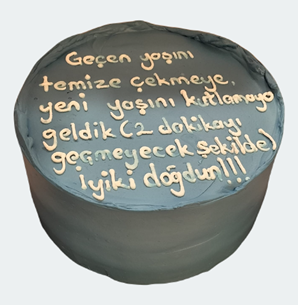 Geçen yaşını
temize çekmeye,
yeni yaşını kutlamaya
geldik (2 dakikayı
geçmeyecek şekilde)
İyiki doğdun!!!